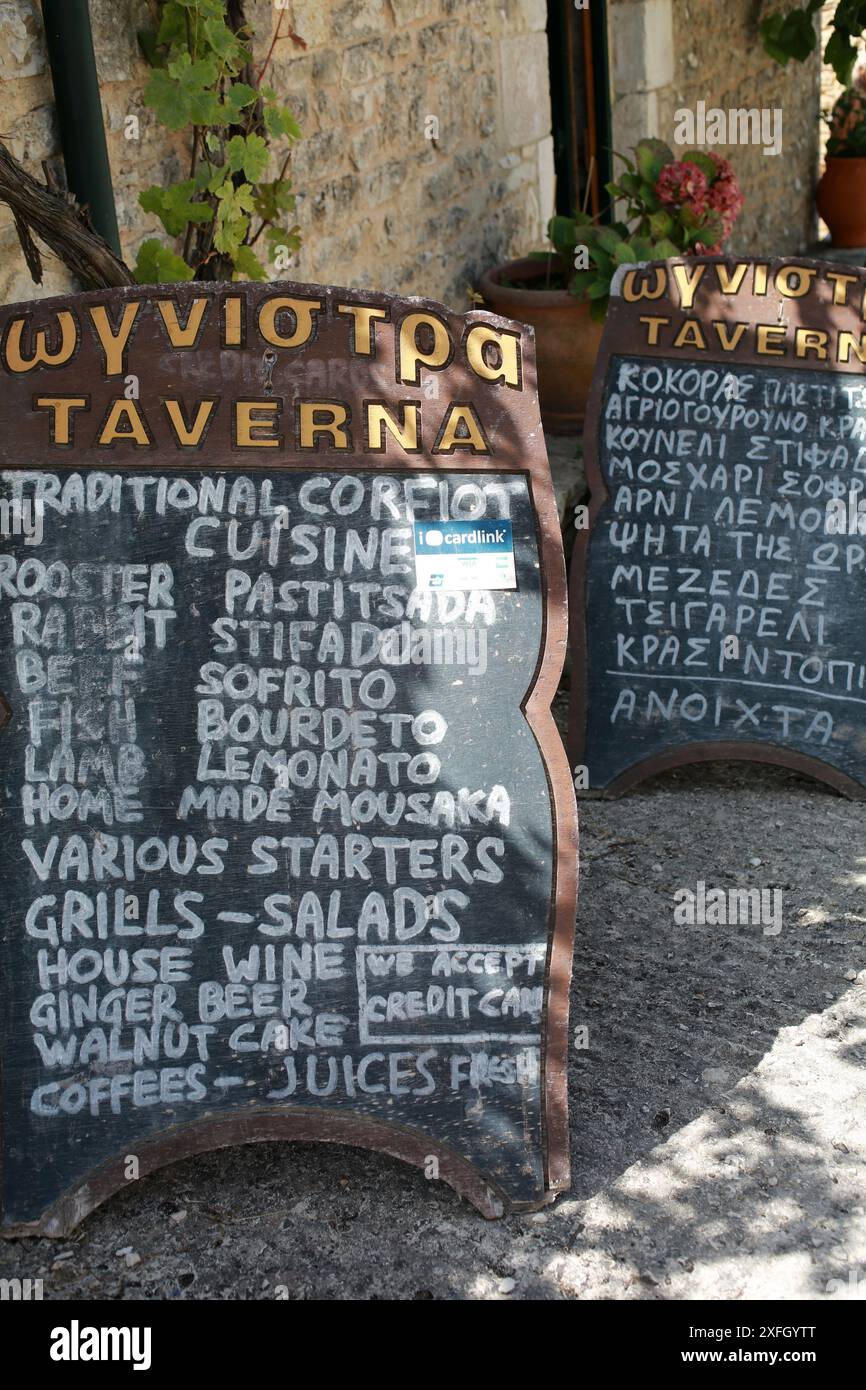 ωγνιστρα
TAVERNA
TRADITIONAL CORFIOT
CUISINE
i cardlink
ROOSTER PASTITSADA
RABBIT STIFADO
BEEF SOFRITO
FISH BOURDETO
LAMB LEMONATO
HOME MADE MOUSAKA
VARIOUS STARTERS
GRILLS - SALADS
HOUSE WINE
GINGER BEER
WALNUT CAKE
WE ACCEPT
CREDIT CAR
COFFEES - JUICES FRESH
ωγνιστ
TAVERNA
ΚΟΚΟΡΑΣ ΠΑΣΤΙΤ
ΑΓΡΙΟΓΟΥΡΟΥΝΟ ΚΡΑ
ΚΟΥΝΕΛΙ ΣΤΙΦΑΔ
ΜΟΣΧΑΡΙ ΣΟΦΡ
ΑΡΝΙ ΛΕΜΟΝΑ
ΨΗΤΑ ΤΗΣ ΩΡΑ
ΜΕΖΕΔΕΣ
ΤΣΙΓΑΡΕΛΙ
ΚΡΑΣΙ ΝΤΟΠΙ
ΑΝΟΙΧΤΑ
alamy
Image ID: 2XFGYTT
www.alamy.com